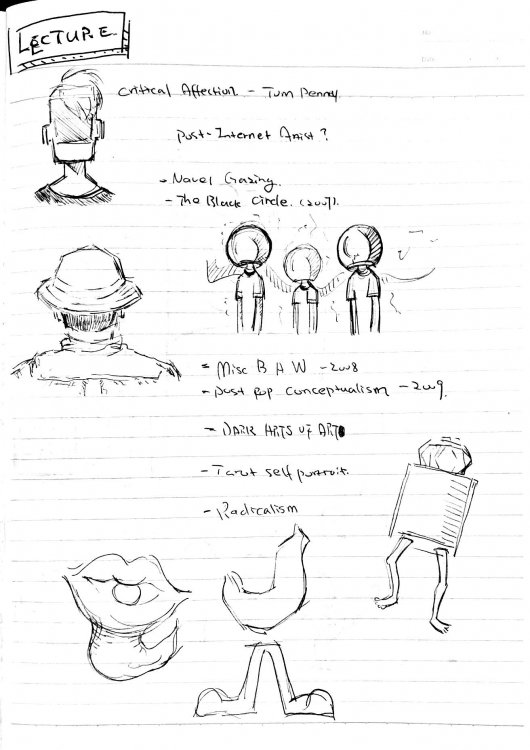 LECTURE
Critical Affection - Tom Penney
Post-Internet Artist?
- Navel Gazing.
- The Black Circle. (2007).
- Misc B A W - 2008
- Post pop conceptualism - 2009.
- DARK ARTS OF ART
- Tarot self portrait.
- Radicalism